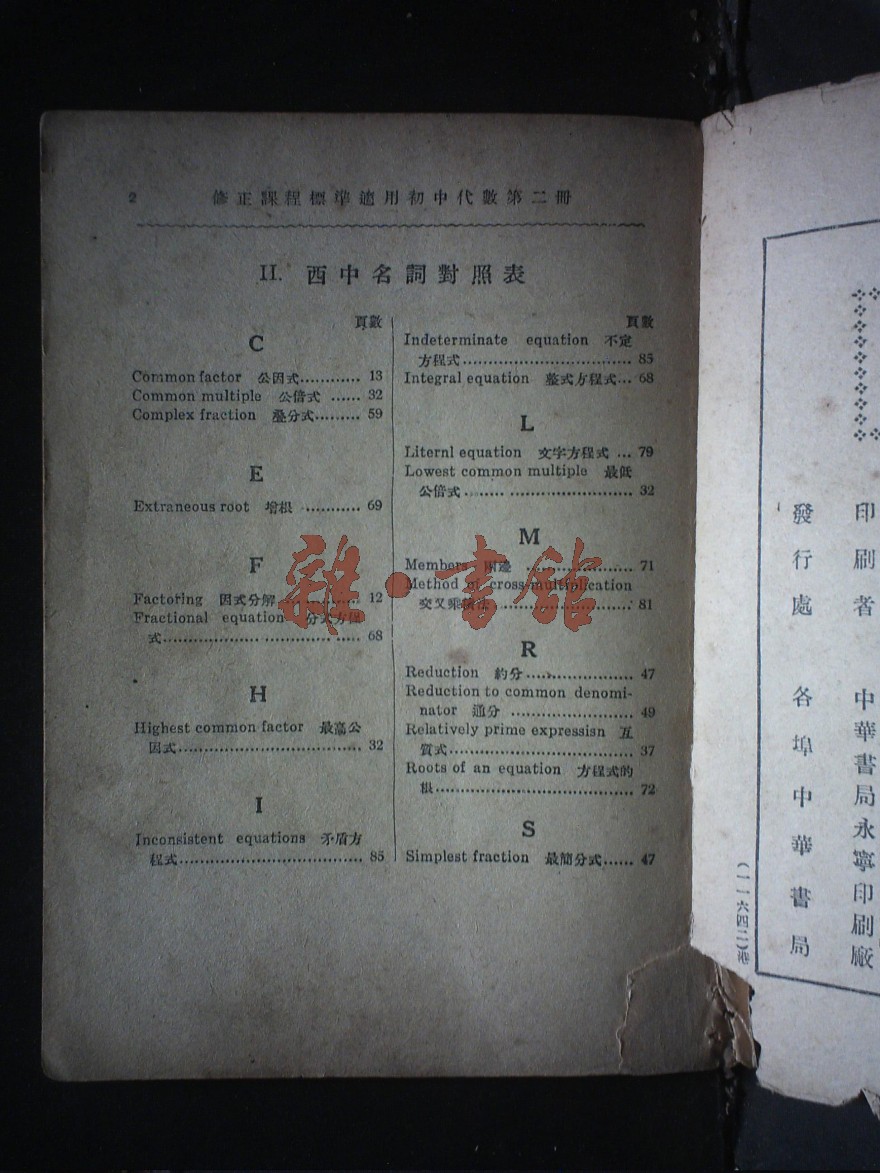 2 修正課程標準適用初中代數第二冊
II. 西中名詞對照表
頁數
C
Common factor 公因式............ 13
Common multiple 公倍式 ...... 32
Complex fraction 疊分式......... 59
E
Extraneous root 增根 ........... 69
F
Factoring 因式分解 ................ 12
Fractional equation 分式方程
式................................. 68
H
Highest common factor 最高公
因式................................ 32
I
Inconsistent equations 矛盾方
程式................................ 85
頁數
Indeterminate equation 不定
方程式.............................. 85
Integral equation 整式方程式... 68
L
Liternl equation 文字方程式 ... 79
Lowest common multiple 最低
公倍式.............................. 32
M
Members 兩邊 .................. 71
Method of cross multiplication
交叉乘積法 ....................... 81
R
Reduction 約分.................... 47
Reduction to common denomi-
nator 通分 ..................... 49
Relatively prime expressisn 互
質式................................ 37
Roots of an equation 方程式的
根................................... 72
S
Simplest fraction 最簡分式...... 47
雜·書館
印刷者 中華書局永寧印刷廠
發行處 各埠中華書局
(一一六四二)港